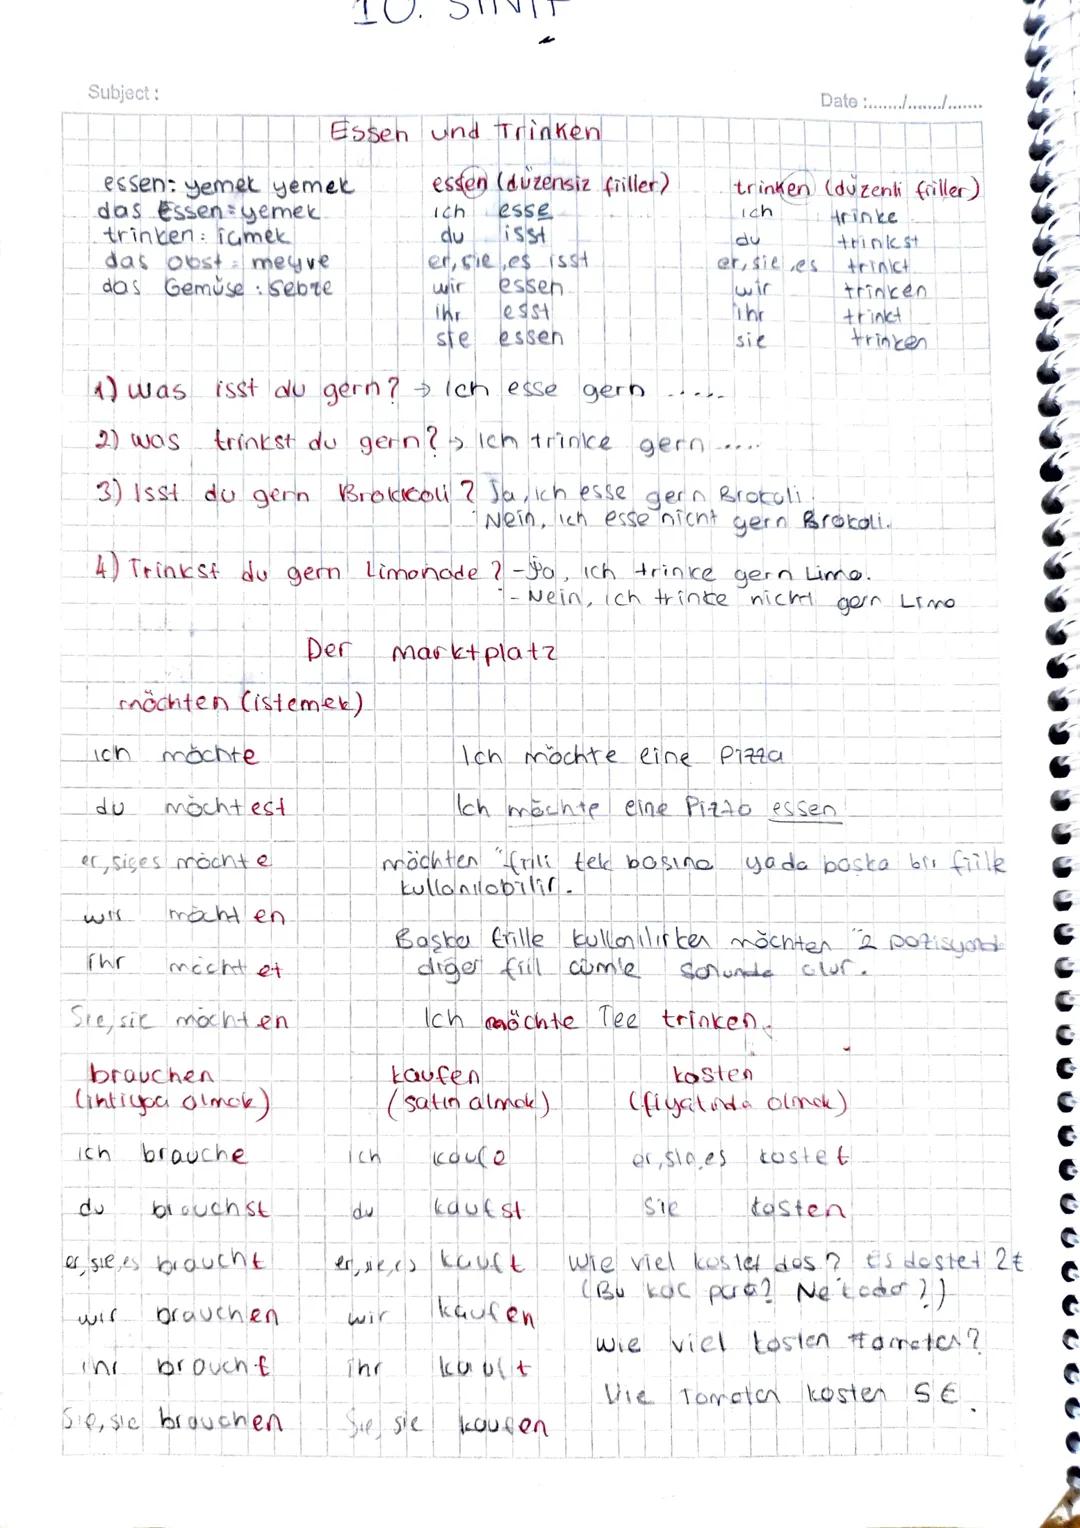 10. SINIF
Subject:
Date :......./......./.......
Essen und Trinken
essen: yemek yemek
das Essen: yemek
trinken: içmek
das obst: meyve
das Gemüse: sebze
essen (düzensiz fiiller)
ich esse
du isst
er, sie, es isst
wir essen
ihr esst
sie essen
trinken (düzenli fiiller)
ich trinke
du trinkst
er, sie, es trinkt
wir trinken
ihr trinkt
sie trinken
1) Was isst du gern? → Ich esse gern .....
2) Was trinkst du gern? → Ich trinke gern ....
3) Isst du gern Brokkoli? Ja, ich esse gern Brokoli.
Nein, ich esse nicht gern Brokoli.
4) Trinkst du gern Limonade? - Ja, ich trinke gern Limo.
- Nein, ich trinke nicht gern Limo
Der marktplatz
möchten (istemek)
ich möchte
du möchtest
er, sie, es möchte
wir möchten
ihr möchtet
Sie, sie möchten
Ich möchte eine Pizza
Ich möchte eine Pizza essen
möchten "fiili tek başına yada başka bir fiille
kullanılabilir.
Başka fiille kullanılırken möchten "2 pozisyonda
diğer fiil cümle sonunda olur.
Ich möchte Tee trinken.
brauchen
(ihtiyacı olmak)
ich brauche
du brauchst
er, sie, es braucht
wir brauchen
ihr braucht
Sie, sie brauchen
kaufen
(satın almak)
ich kaufe
du kaufst
er, sie, es kauft
wir kaufen
ihr kauft
Sie, sie kaufen
kosten
(fiyatında olmak)
er, sie, es kostet
sie kosten
Wie viel kostet das? Es dostet 2€
(Bu kaç para? Ne kadar?)
Wie viel kosten tomaten?
Die Tomaten kosten 5€.